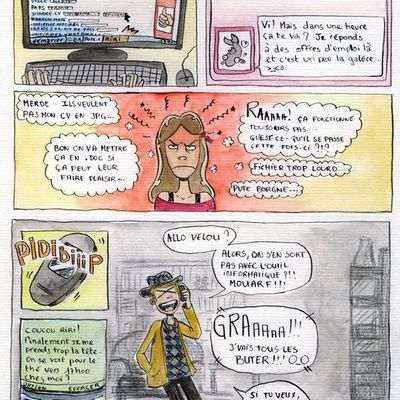 Vi! Mais dans une heure
ça te va? Je réponds
à des offres d'emploi là
et c'est un peu la galère...
>_<6
MERDE... ILS VEULENT
PAS MON CV EN JPG...
BON ON VA METTRE
ÇA EN .DOC SI
ÇA PEUT LEUR
FAIRE PLAISIR...
RAAAAA! ÇA FONCTIONNE
TOUJOURS PAS...
QU'EST-CE-QU'IL SE PASSE
CETTE FOIS-CI?!?
FICHIER TROP LOURD...
PUTE BORGNE...
PIDIDIiiP
ALLO VELOU?
ALORS, ON S'EN SORT
PAS AVEC L'OUTIL
INFORMATIQUE?!!
MOUARF!!!
GRAAaaaa!!!
J'VAIS TOUS LES
BUTER!!! O_O
COUCOU RIRI!
Finalement se me
prends trop la tête-
On se voit pour le
thé vers 17h00
chez moi?
OPTION EFFACER
SI TU VEUX,